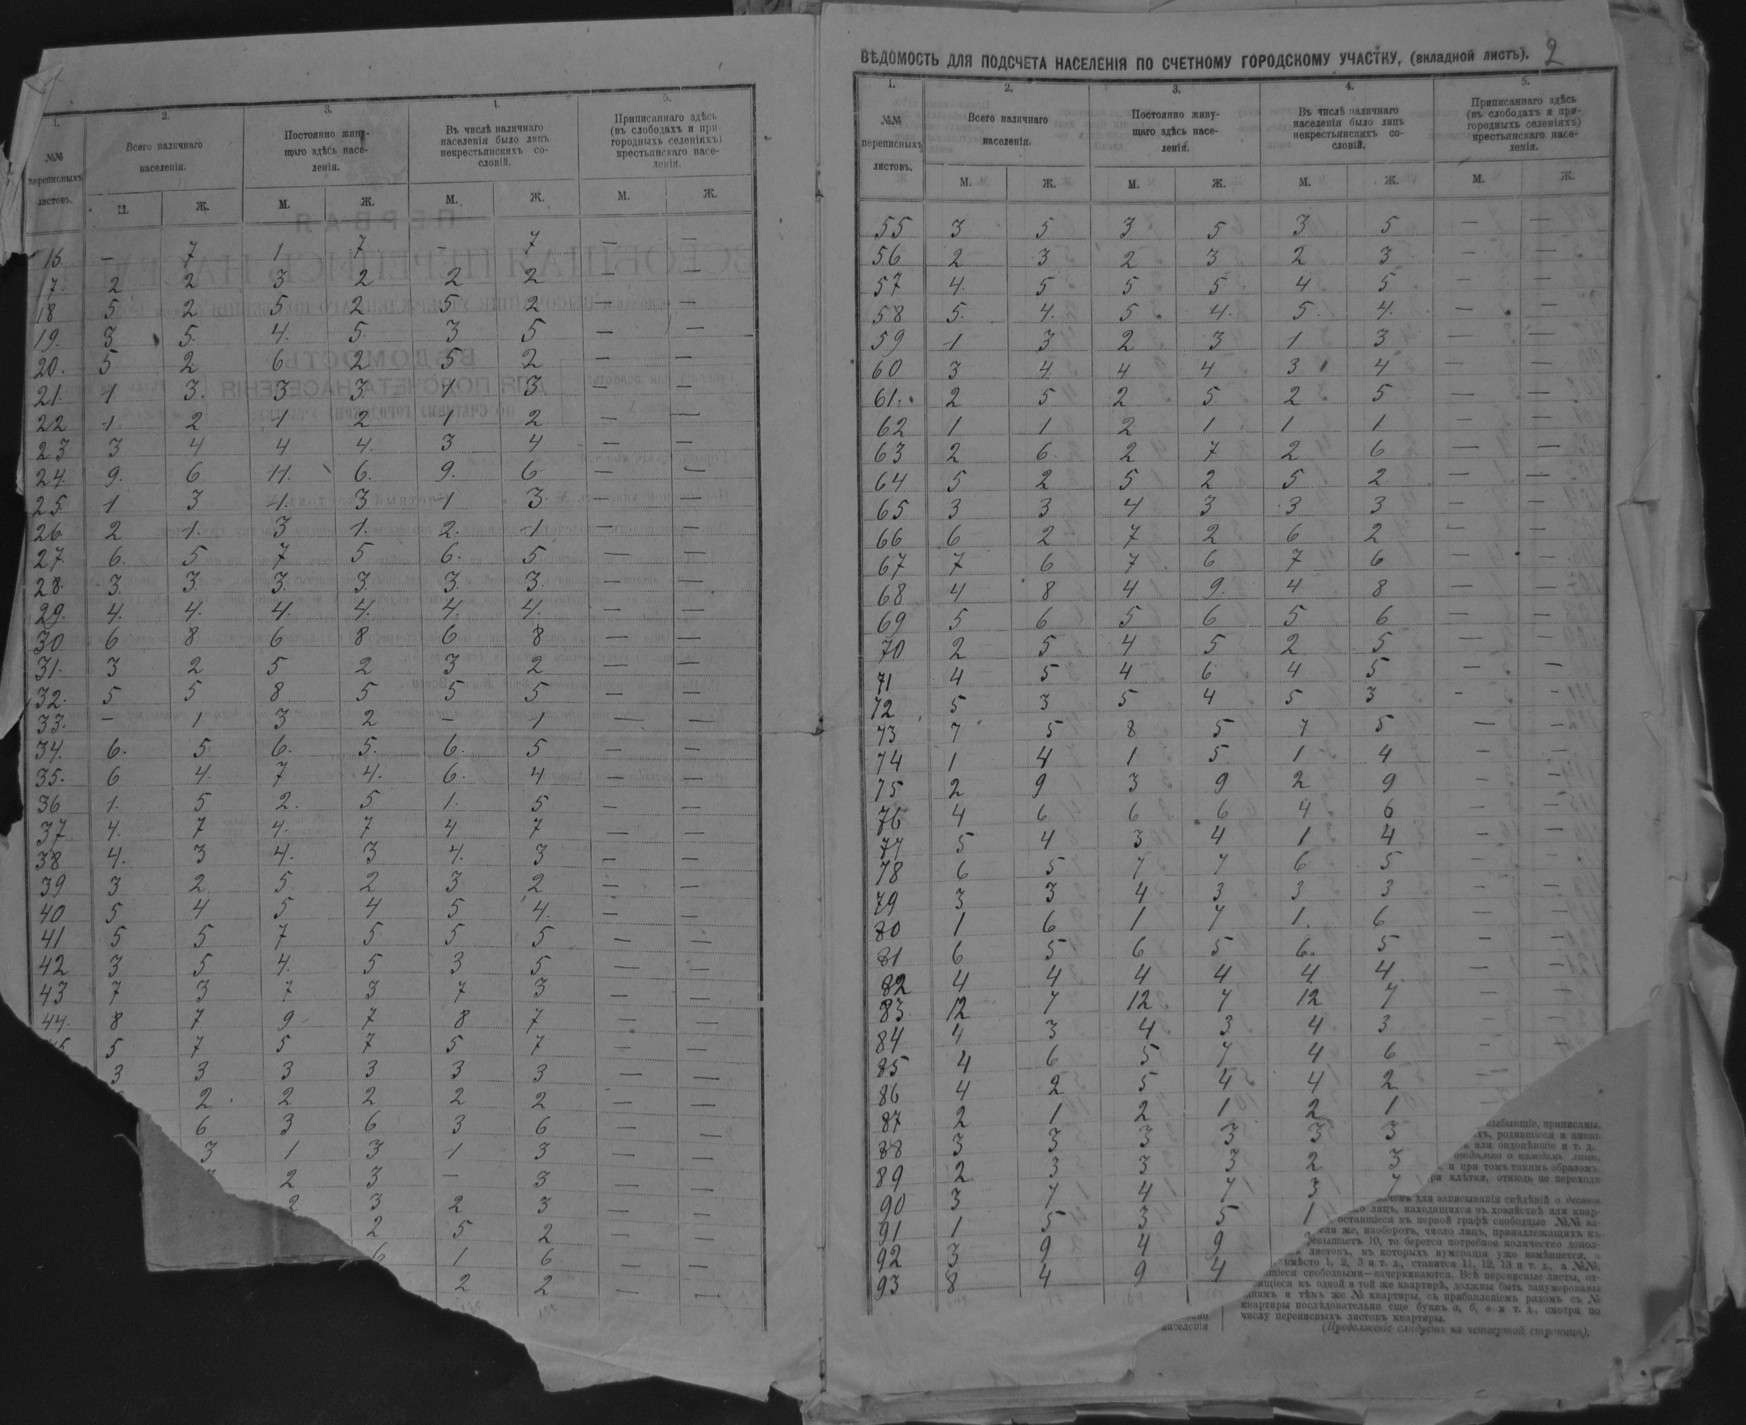 1. 2. 3. 4. 5.
№№ переписныхъ листовъ. Всего наличнаго населенія. Постоянно живущаго здѣсь населенія. Въ числѣ наличнаго населенія было лицъ некрестьянскихъ сословій. Приписаннаго здѣсь (въ слободахъ и пригородныхъ селеніяхъ) крестьянскаго населенія.
М. Ж. М. Ж. М. Ж. М. Ж.
16. — 7 1 7 — 7 — —
17. 2 2 3 2 2 2 — —
18 5 2 5 2 5 2 — —
19. 3 5. 4. 5. 3 5 — —
20. 5 2 6 2 5 2 — —
21. 1 3. 3 3. 1 3. — —
22 1. 2 1 2 1 2 — —
23 3 4 4 4. 3 4 — —
24. 9. 6 11. 6. 9. 6 — —
25. 1 3 1. 3 1 3. — —
26 2 1. 3 1. 2. 1 — —
27. 6. 5 7 5 6. 5 — —
28. 3. 3. 3. 3. 3. 3. — —
29. 4. 4. 4. 4. 4. 4. — —
30 6 8 6 8 6 8 — —
31. 3 2 5 2 3 2 — —
32. 5 5 8 5 5 5 — —
33. — 1 3 2 — 1 — —
34. 6. 5 6. 5. 6. 5 — —
35. 6 4. 7 4. 6. 4 — —
36 1. 5 2. 5 1. 5 — —
37 4. 7 4. 7 4 7 — —
38 4. 3 4. 3 4. 3 — —
39 3 2 5 2 3 2 — —
40 5 4 5 4 5 4. — —
41 5 5 7 5 5 5 — —
42 3 5 4. 5 3 5 — —
43 7 3 7 3 7 3 — —
44. 8 7 9 7 8 7 — —
5 7 5 7 5 7 — —
3 3 3 3 3 3 — —
2 2 2 2 2 — —
6 3 6 3 6 — —
3 1 3 1 3 — —
2 3 — 3 — —
2 3 2 3 — —
2 5 2 — —
6 1 6 — —
2 2 — —
ВѢДОМОСТЬ ДЛЯ ПОДСЧЕТА НАСЕЛЕНІЯ ПО СЧЕТНОМУ ГОРОДСКОМУ УЧАСТКУ, (вкладной листъ). 2
1. 2. 3. 4. 5.
№№ переписныхъ листовъ. Всего наличнаго населенія. Постоянно живущаго здѣсь населенія. Въ числѣ наличнаго населенія было лицъ некрестьянскихъ сословій. Приписаннаго здѣсь (въ слободахъ и пригородныхъ селеніяхъ) крестьянскаго населенія.
М. Ж. М. Ж. М. Ж. М. Ж.
55 3 5 3 5 3 5 — —
56 2 3 2 3 2 3 — —
57 4. 5 5 5 4 5 — —
58 5. 4. 5 4. 5. 4. — —
59 1 3 2 3 1 3 — —
60 3 4. 4 4 3 4 — —
61. 2 5 2 5 2 5 — —
62 1 1 2 1 1 1 — —
63 2 6. 2 7 2 6 — —
64 5 2 5 2 5 2 — —
65 3 3 4 3 3 3 — —
66 6 2 7 2 6 2 — —
67 7 6 7 6 7 6 — —
68 4 8 4 9. 4 8 — —
69 5 6 5 6 5 6 — —
70 2 5 4 5 2 5 — —
71 4 5 4 6 4 5 — —
72 5 3 5 4 5 3 — —
73 7 5 8 5 7 5 — —
74 1 4 1 5 1 4 — —
75 2 9 3 9 2 9 — —
76 4 6 6 6 4 6 — —
77 5 4 3 4 1 4 — —
78 6 5 7 7 6 5 — —
79 3 3 4 3 3 3 — —
80 1 6 1 7 1. 6 — —
81 6 5 6 5 6. 5 — —
82 4 4 4 4 4 4 — —
83. 12 7 12 7 12 7 — —
84 4 3 4 3 4 3 — —
85 4 6 5 7 4 6 —
86 4 2 5 4 4 2 —
87 2 1 2 1 2 1
88 3 3 3 3 3 3
89 2 3 3 3 2 3
90 3 7 4 7 3 7
91 1 5 3 5 1
92 3 9 4 9
93 8 4 9 4
выбывшіе, приписаны,
родившіеся и
или овдовѣвшіе и т. д.
и при томъ такимъ образомъ,
клѣтки, отнюдь не переходя
для записыванія свѣдѣній о
лицъ, находящихся въ хозяйствѣ или квар-
оставшіеся въ первой графѣ свободные №№
же, наоборотъ, число лицъ, принадлежащихъ
10, то берется потребное количество допол-
листовъ, въ которыхъ нумерація уже измѣняется, а
вмѣсто 1, 2, 3 и т. д., ставится 11, 12, 13 и т. д., а №№,
свободными—зачеркиваются. Всѣ переписные листы, от-
къ одной и той же квартирѣ, должны быть занумерованы
и тѣмъ же № квартиры, съ прибавленіемъ рядомъ съ №
квартиры послѣдовательно еще буквъ а, б, в и т. д., смотря по
числу переписныхъ листовъ квартиры.
населенія
(Продолженіе слѣдуетъ на четвертой страницѣ).